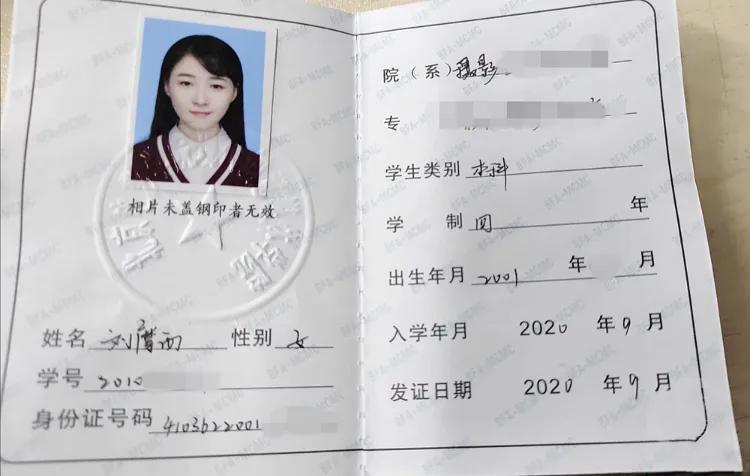 相片未盖钢印者无效
姓名 刘 西 性别 女
学号 2010
身份证号码 4103622001
院（系）摄影
专
学生类别 本科
学 制 四 年
出生年月 2001 年 月
入学年月 2020 年 9 月
发证日期 2020 年 9 月
BFA-MCMC